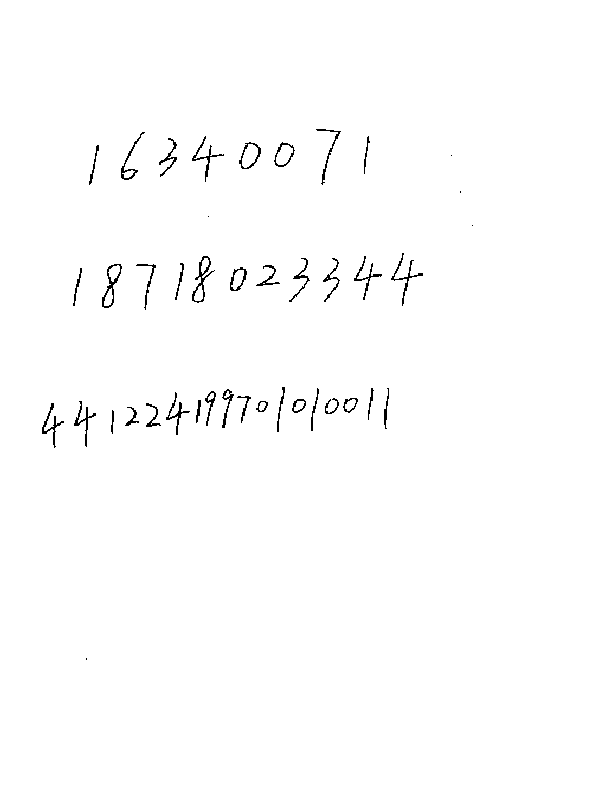 16340071
18718023344
441224199701010011